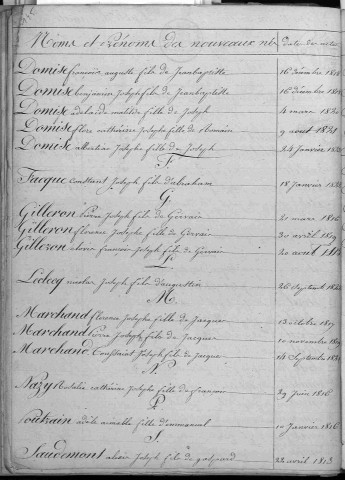 Noms et prénoms des nouveaux nés Date des actes
Domise françois auguste fils de Jeanbaptiste 16 décembre
Domise benjamin Joseph fils de Jeanbaptiste 16 décembre
Domise adelaide fille de Joseph 4 mars
Domise flore catherine Josephe fille de Romain 9 aout 1821
Domise albertine Josephe fille de Joseph 24 Janvier
F
Facque constant Joseph fils d'abraham 18 Janvier
G
Gilleron pierre Joseph fils de Gervais 21 mars
Gilleron florence Josephe fille de Gervais 20 avril
Gilleron françois Joseph fils de Gervais 20 avril
L
Leclecq nicolas Joseph fils d'augustin 26 septembre
M
Marchand florence Josephe fille de Jacque 13 octobre
Marchand pierre Joseph fils de Jacque 10 novembre
Marchand Constant Joseph fils de Jacque 14 Septembre
N
Nazy Rosalie catherine Josephe fille de françois 29 Juin 1816
P
Poutrain adèle aimable fille d'emmanuel 10 Janvier 1816
S
Saudemont Joseph fils de gaspard 22 avril 1813